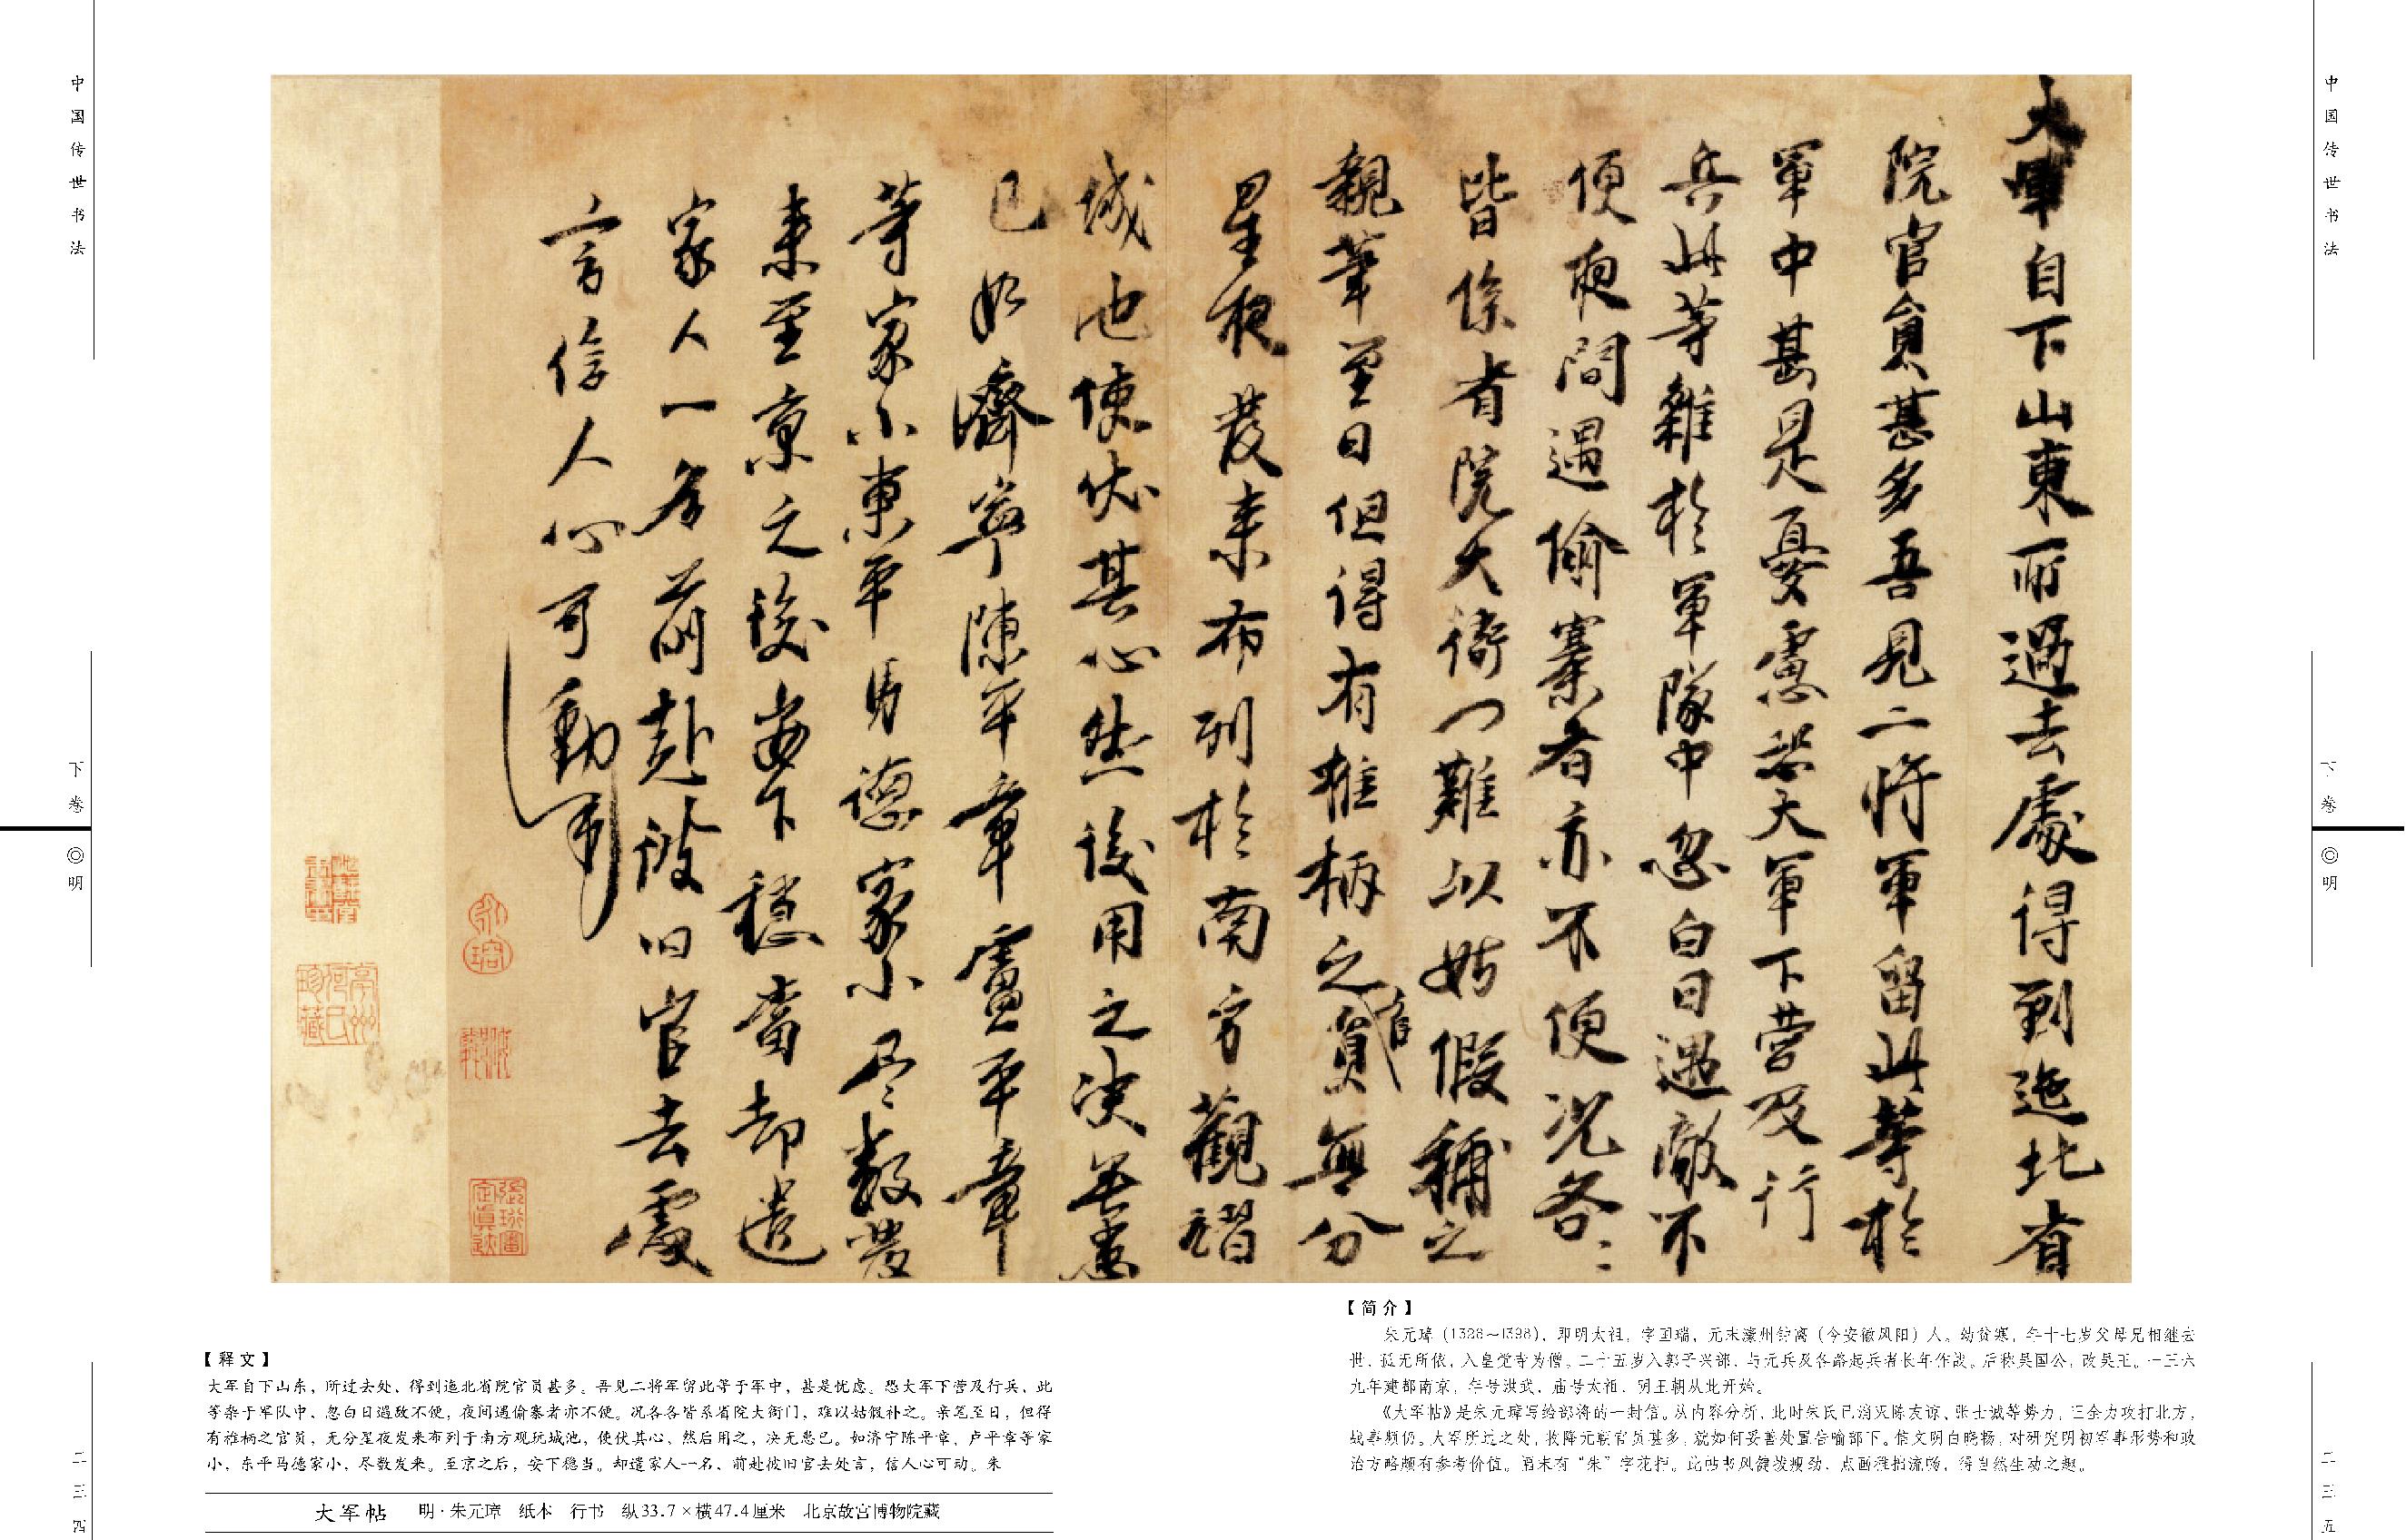 中国传世书法
下卷
◎明
二三四
大軍自下山東所過去處得到迤北省
院官員甚多吾見二将軍留此等於
軍中甚是憂慮恐大軍下营及行
兵此等雜於軍隊中忽白日遇敵不
便夜間遇偷寨者亦不便况各〻
皆係省院大衙门難以姑假補之
親筆至日但得有椎柄之官員無分
星夜发来布列於南方觀翫
城池使伏其心然後用之决无患
已如濟寧陳平章盧平章
等家小東平馬德家小尽数發
来至京之後安下稳當却遣
家人一名前赴彼旧官去處
言信人心可動
張珩審定真跡
【释文】
大军自下山东，所过去处，得到迤北省院官员甚多。吾见二将军留此等于军中，甚是忧虑。恐大军下营及行兵，此
等杂于军队中，忽白日遇敌不便，夜间遇偷寨者亦不便。况各各皆系省院大衙门，难以姑假补之。亲笔至日，但得
有椎柄之官员，无分星夜发来布列于南方观玩城池，使伏其心，然后用之，决无患已。如济宁陈平章，卢平章等家
小，东平马德家小，尽数发来。至京之后，安下稳当。却遣家人一名，前赴彼旧官去处言，信人心可动。朱
大军帖　明·朱元璋　纸本　行书　纵33.7×横47.4厘米　北京故宫博物院藏
【简介】
朱元璋（1328～1398），即明太祖，字国瑞，元末濠州钟离（今安徽凤阳）人。幼贫寒，年十七岁父母兄相继去
世，孤无所依，入皇觉寺为僧。二十五岁入郭子兴部，与元兵及各路起兵者长年作战。后称吴国公，改吴王。一三六
九年建都南京，年号洪武，庙号太祖，明王朝从此开始。
《大军帖》是朱元璋写给部将的一封信。从内容分析，此时朱氏已消灭陈友谅、张士诚等势力，正全力攻打北方，
战事频仍。大军所过之处，收降元朝官员甚多，就如何妥善处置告喻部下。信文明白晓畅，对研究明初军事形势和政
治方略颇有参考价值。篇末有“朱”字花押。此帖书风健拔瘦劲，点画稚拙流畅，得自然生动之趣。
中国传世书法
下卷
◎明
二三五